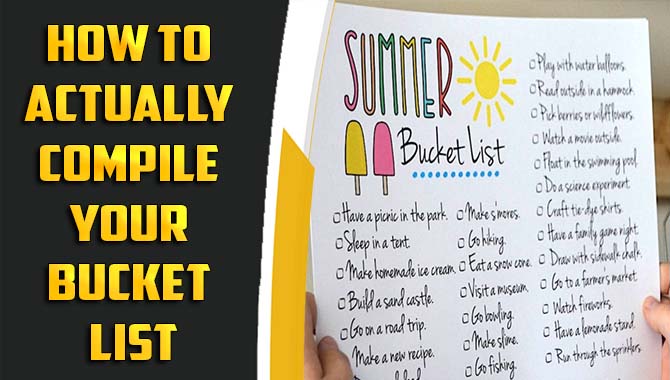 HOW TO
ACTUALLY
COMPILE
YOUR
BUCKET
LIST
SUMMER
Bucket List
Have a picnic in the park.
Sleep in a tent.
Make homemade ice cream.
Build a sand castle.
Go on a road trip.
Make a new recipe.
Make s'mores.
Go hiking.
Eat a snow cone.
Visit a museum.
Go bowling.
Make slime.
Go fishing.
Play with water balloons.
Read outside in a hammock.
Pick berries or wildflowers.
Watch a movie outside.
Float in the swimming pool.
Do a science experiment.
Craft tie-dye shirts.
Have a family game night.
Draw with sidewalk chalk.
Go to a farmer's market.
Watch fireworks.
Have a lemonade stand.
Run through the sprinklers.